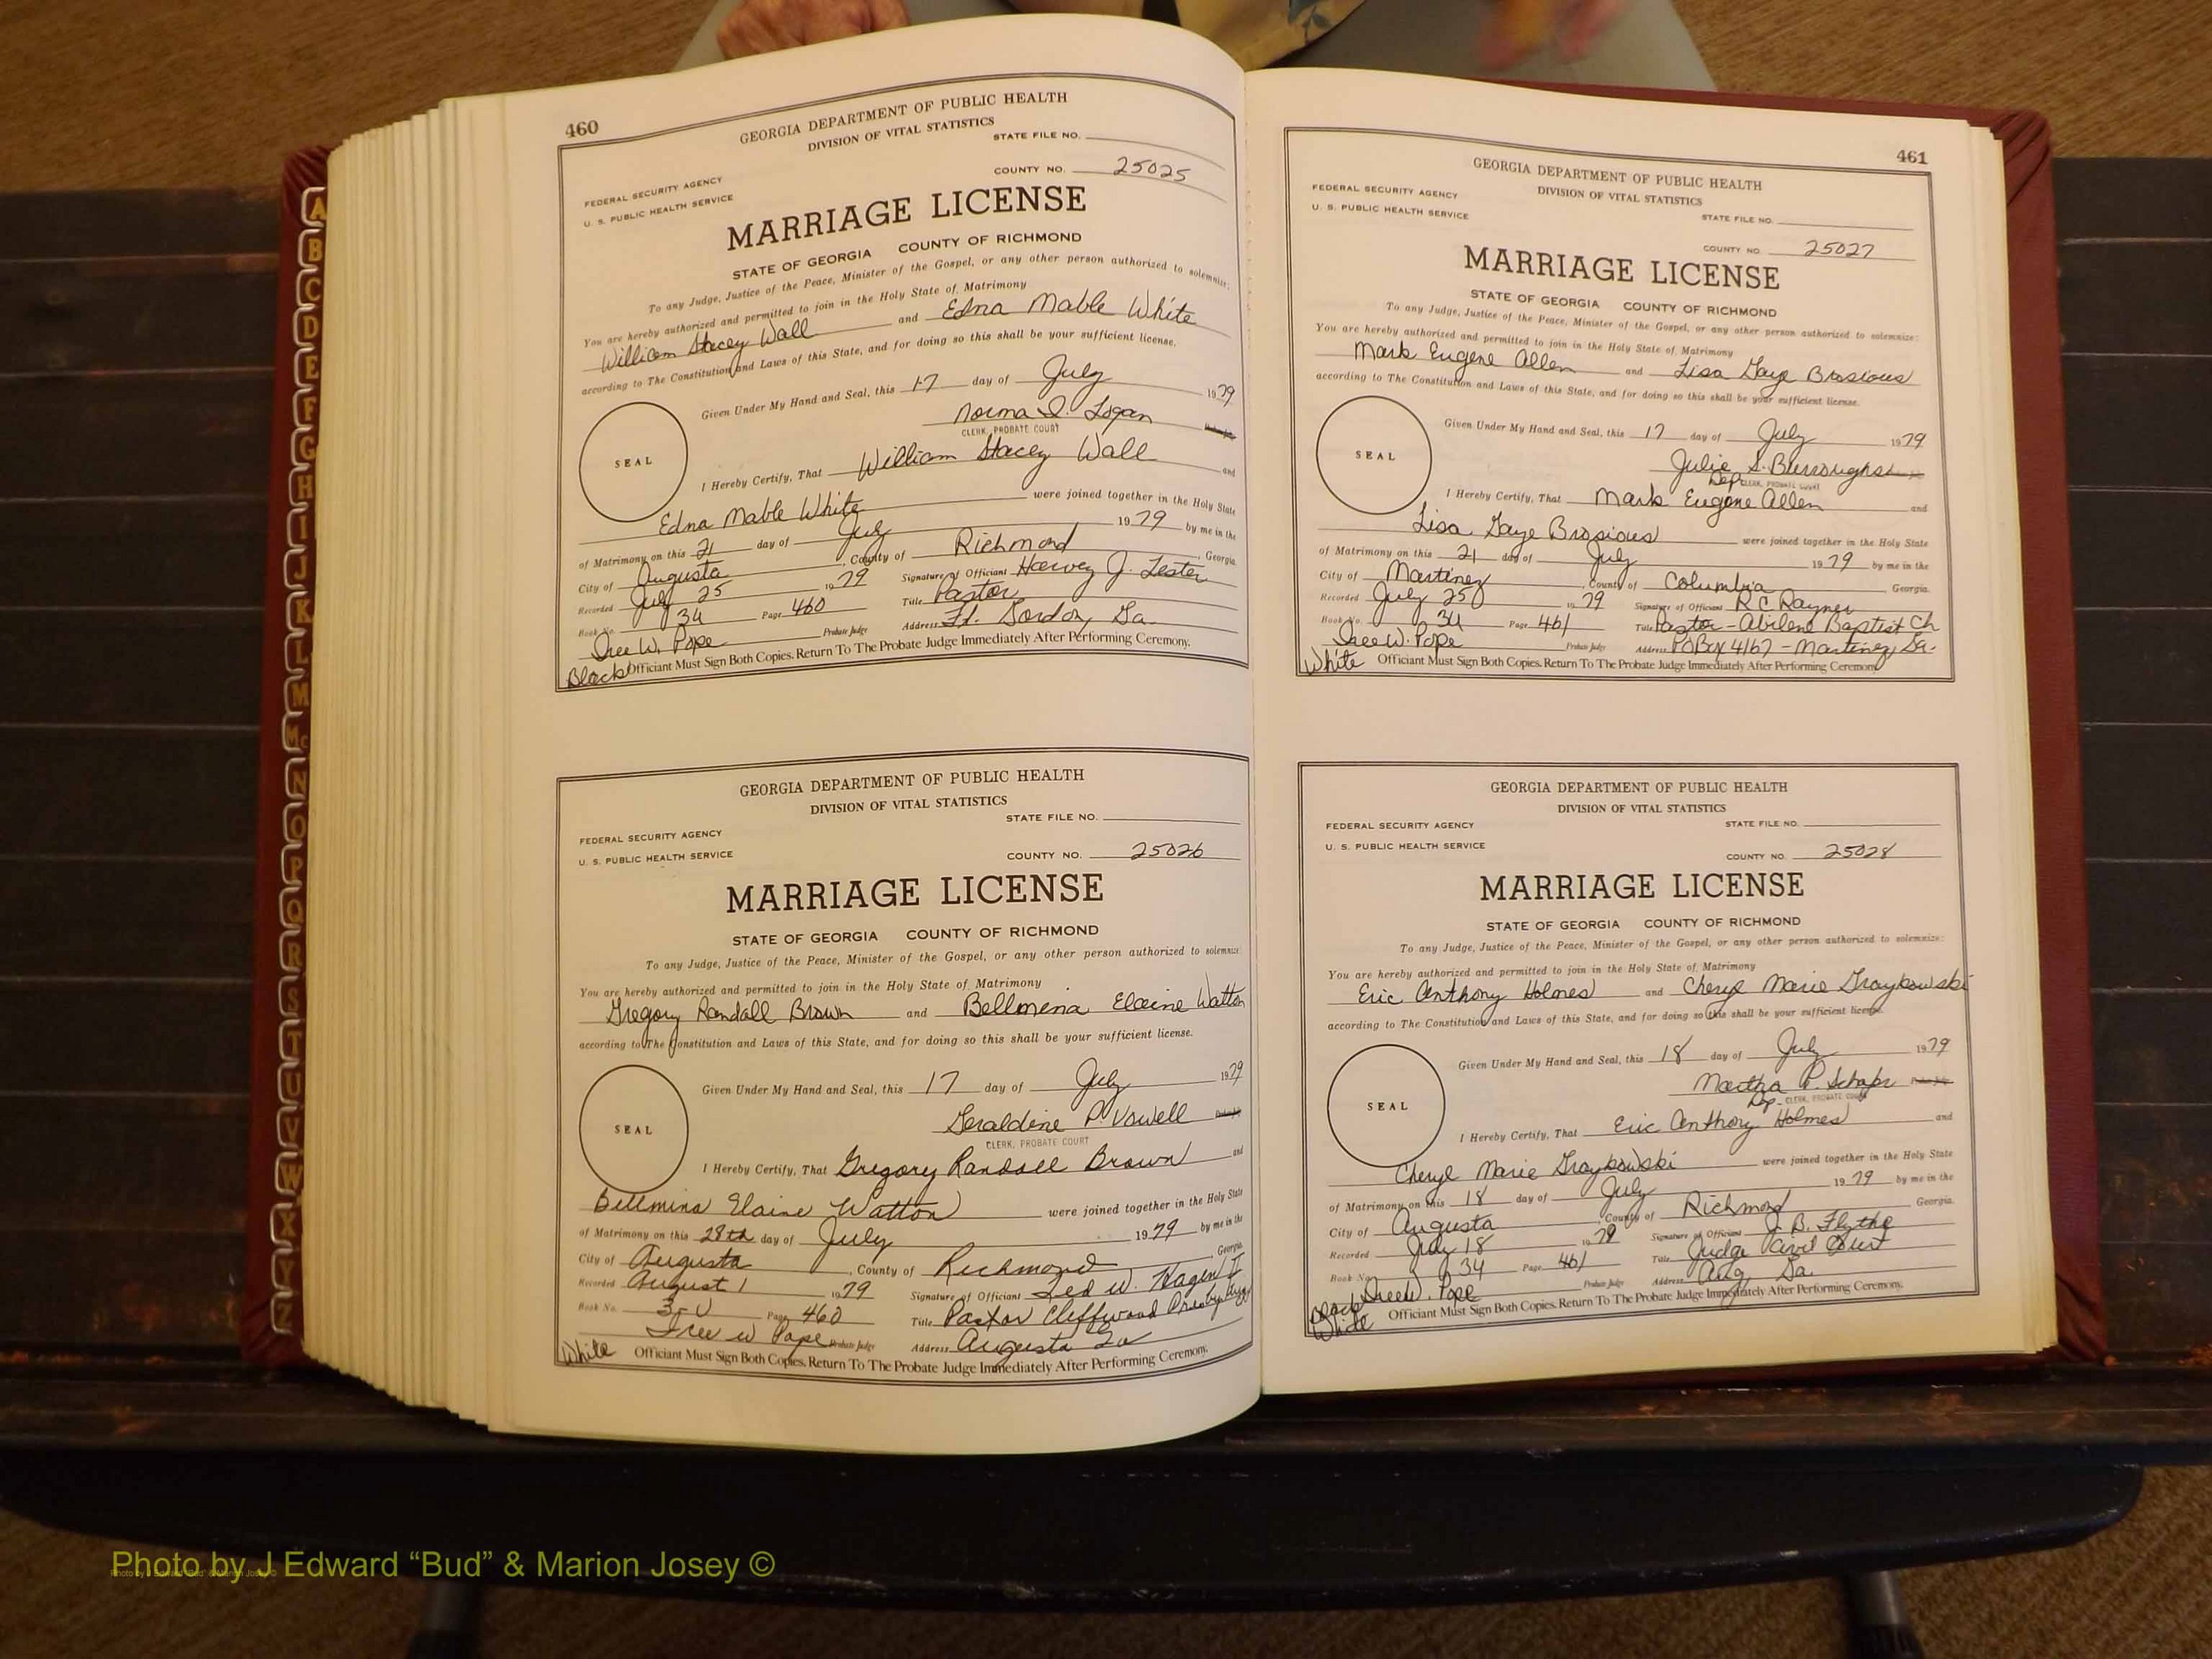 A
B
C
D
E
F
G
H
I
J
K
L
M
Mc
N
O
P
Q
R
S
T
U
V
W
X
Y
Z
460
GEORGIA DEPARTMENT OF PUBLIC HEALTH
DIVISION OF VITAL STATISTICS
STATE FILE NO.
COUNTY NO. 25025
FEDERAL SECURITY AGENCY
U. S. PUBLIC HEALTH SERVICE
MARRIAGE LICENSE
STATE OF GEORGIA COUNTY OF RICHMOND
To any Judge, Justice of the Peace, Minister of the Gospel, or any other person authorized to solemnize:
You are hereby authorized and permitted to join in the Holy State of Matrimony
William Stacey Wall and Edna Mable White
according to The Constitution and Laws of this State, and for doing so this shall be your sufficient license.
Given Under My Hand and Seal, this 17 day of July 1979
Norma I. Logan
CLERK, PROBATE COURT
SEAL
I Hereby Certify, That William Stacey Wall and
Edna Mable White were joined together in the Holy State
of Matrimony on this 21 day of July 1979 by me in the
City of Augusta, County of Richmond, Georgia.
Recorded July 25 1979 Signature of Officiant Harvey J. Lester
Book No. 34 Page 460 Title Pastor
Iree W. Pope Probate Judge Address Ft. Gordon, Ga.
Black Officiant Must Sign Both Copies. Return To The Probate Judge Immediately After Performing Ceremony.
GEORGIA DEPARTMENT OF PUBLIC HEALTH
DIVISION OF VITAL STATISTICS
STATE FILE NO.
FEDERAL SECURITY AGENCY
U. S. PUBLIC HEALTH SERVICE
COUNTY NO. 25026
MARRIAGE LICENSE
STATE OF GEORGIA COUNTY OF RICHMOND
To any Judge, Justice of the Peace, Minister of the Gospel, or any other person authorized to solemnize:
You are hereby authorized and permitted to join in the Holy State of Matrimony
Gregory Randall Brown and Bellmena Elaine Watton
according to The Constitution and Laws of this State, and for doing so this shall be your sufficient license.
Given Under My Hand and Seal, this 17 day of July 1979
Geraldine P. Vowell
CLERK, PROBATE COURT
SEAL
I Hereby Certify, That Gregory Randall Brown and
Bellmina Elaine Watton were joined together in the Holy State
of Matrimony on this 28th day of July 1979 by me in the
City of Augusta, County of Richmond, Georgia.
Recorded August 1 1979 Signature of Officiant Led W. Hagen
Book No. 3-U Page 460 Title Pastor Cliffwood Presby
Iree W Pope Probate Judge Address Augusta Ga
White Officiant Must Sign Both Copies. Return To The Probate Judge Immediately After Performing Ceremony.
461
GEORGIA DEPARTMENT OF PUBLIC HEALTH
DIVISION OF VITAL STATISTICS
FEDERAL SECURITY AGENCY
U. S. PUBLIC HEALTH SERVICE
STATE FILE NO.
COUNTY NO. 25027
MARRIAGE LICENSE
STATE OF GEORGIA COUNTY OF RICHMOND
To any Judge, Justice of the Peace, Minister of the Gospel, or any other person authorized to solemnize:
You are hereby authorized and permitted to join in the Holy State of Matrimony
Mark Eugene Allen and Lisa Gaye Brosious
according to The Constitution and Laws of this State, and for doing so this shall be your sufficient license.
Given Under My Hand and Seal, this 17 day of July 1979
Julie S. Burroughs
Dep. CLERK, PROBATE COURT
SEAL
I Hereby Certify, That Mark Eugene Allen and
Lisa Gaye Brosious were joined together in the Holy State
of Matrimony on this 21 day of July 1979 by me in the
City of Martinez, County of Columbia, Georgia.
Recorded July 25 1979 Signature of Officiant R C Rayner
Book No. 34 Page 461 Title Pastor - Abilene Baptist Ch
Iree W. Pope Probate Judge Address PO Box 4167 - Martinez Ga.
White Officiant Must Sign Both Copies. Return To The Probate Judge Immediately After Performing Ceremony
GEORGIA DEPARTMENT OF PUBLIC HEALTH
DIVISION OF VITAL STATISTICS
FEDERAL SECURITY AGENCY
STATE FILE NO.
U. S. PUBLIC HEALTH SERVICE
COUNTY NO. 25028
MARRIAGE LICENSE
STATE OF GEORGIA COUNTY OF RICHMOND
To any Judge, Justice of the Peace, Minister of the Gospel, or any other person authorized to solemnize:
You are hereby authorized and permitted to join in the Holy State of Matrimony
Eric Anthony Holmes and Cheryl Marie Graykowski
according to The Constitution and Laws of this State, and for doing so this shall be your sufficient license.
Given Under My Hand and Seal, this 18 day of July 1979
Martha P. Schafe
Dep. CLERK, PROBATE COURT
SEAL
I Hereby Certify, That Eric Anthony Holmes and
Cheryl Marie Graykowski were joined together in the Holy State
of Matrimony on this 18 day of July 1979 by me in the
City of Augusta, County of Richmond, Georgia.
Recorded July 18 1979 Signature of Officiant J. B. Flythe
Book No. 34 Page 461 Title Judge Civil Court
Iree W. Pope Probate Judge Address Aug, Ga
Black
White Officiant Must Sign Both Copies. Return To The Probate Judge Immediately After Performing Ceremony.
Photo by J Edward “Bud” & Marion Josey ©
Photo by J Edward “Bud” & Marion Josey ©